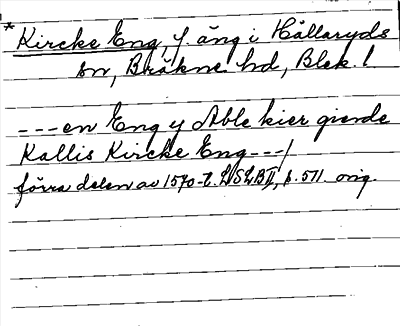 * Kircke Eng, f. äng i Hällaryds
sn, Bräkne hd, Blek. l
---en Eng y Able kier giende
Kallis Kircke Eng---/
förra delen av 1570-t. LSLB II, p. 511. orig.